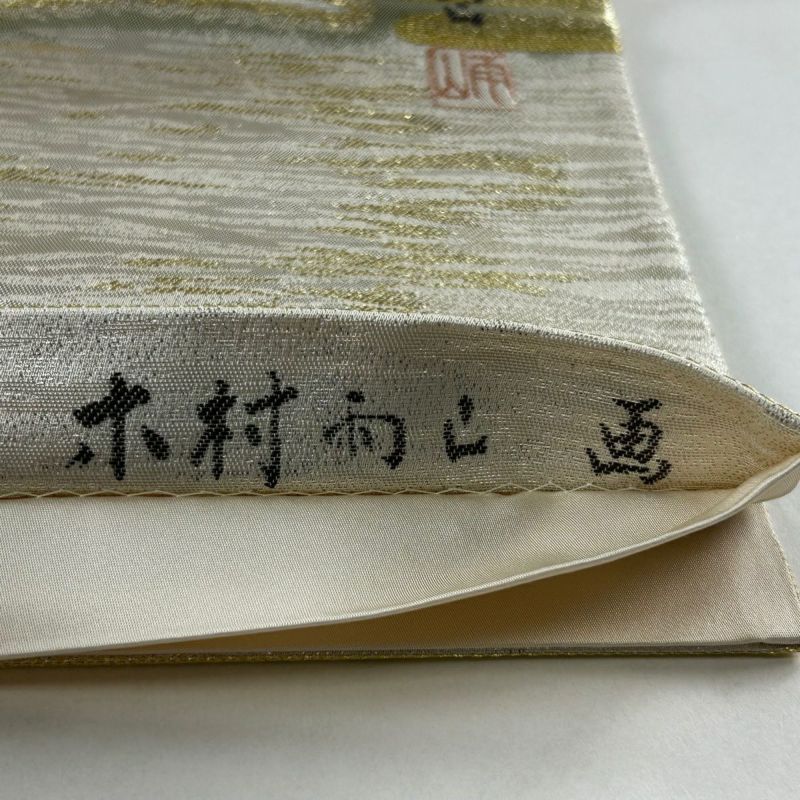 木村雨山 画